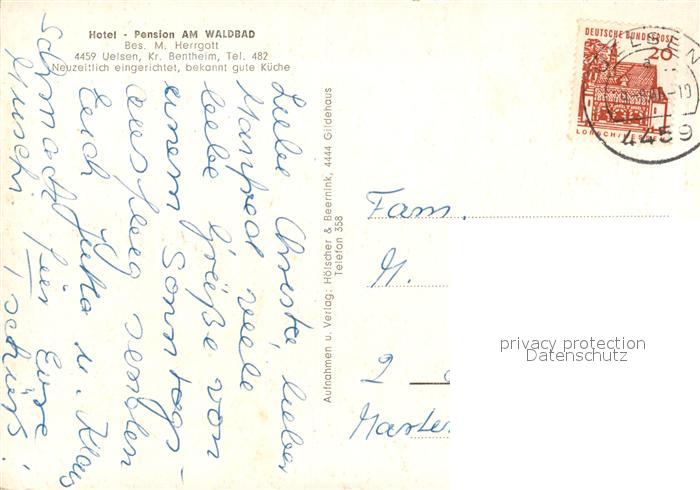 Hotel - Pension AM WALDBAD
Bes. M. Herrgott
4459 Uelsen, Kr. Bentheim, Tel. 482
Neuzeitlich eingerichtet, bekannt gute Küche
Liebe Christa, lieber
Manfred viele
liebe Grüße von
einem Sonntags-
ausflug senden
Euch Jutta u. Klaus
Schmacht für Eure
Muschi. Tschüß!
Aufnahmen u. Verlag: Hölscher & Beernink, 4444 Gildehaus
Telefon 358
DEUTSCHE BUNDESPOST
20
LORSCH/HESSEN
UELSEN
a
-10
4459
Fam.
M.
2
privacy protection
Datenschutz